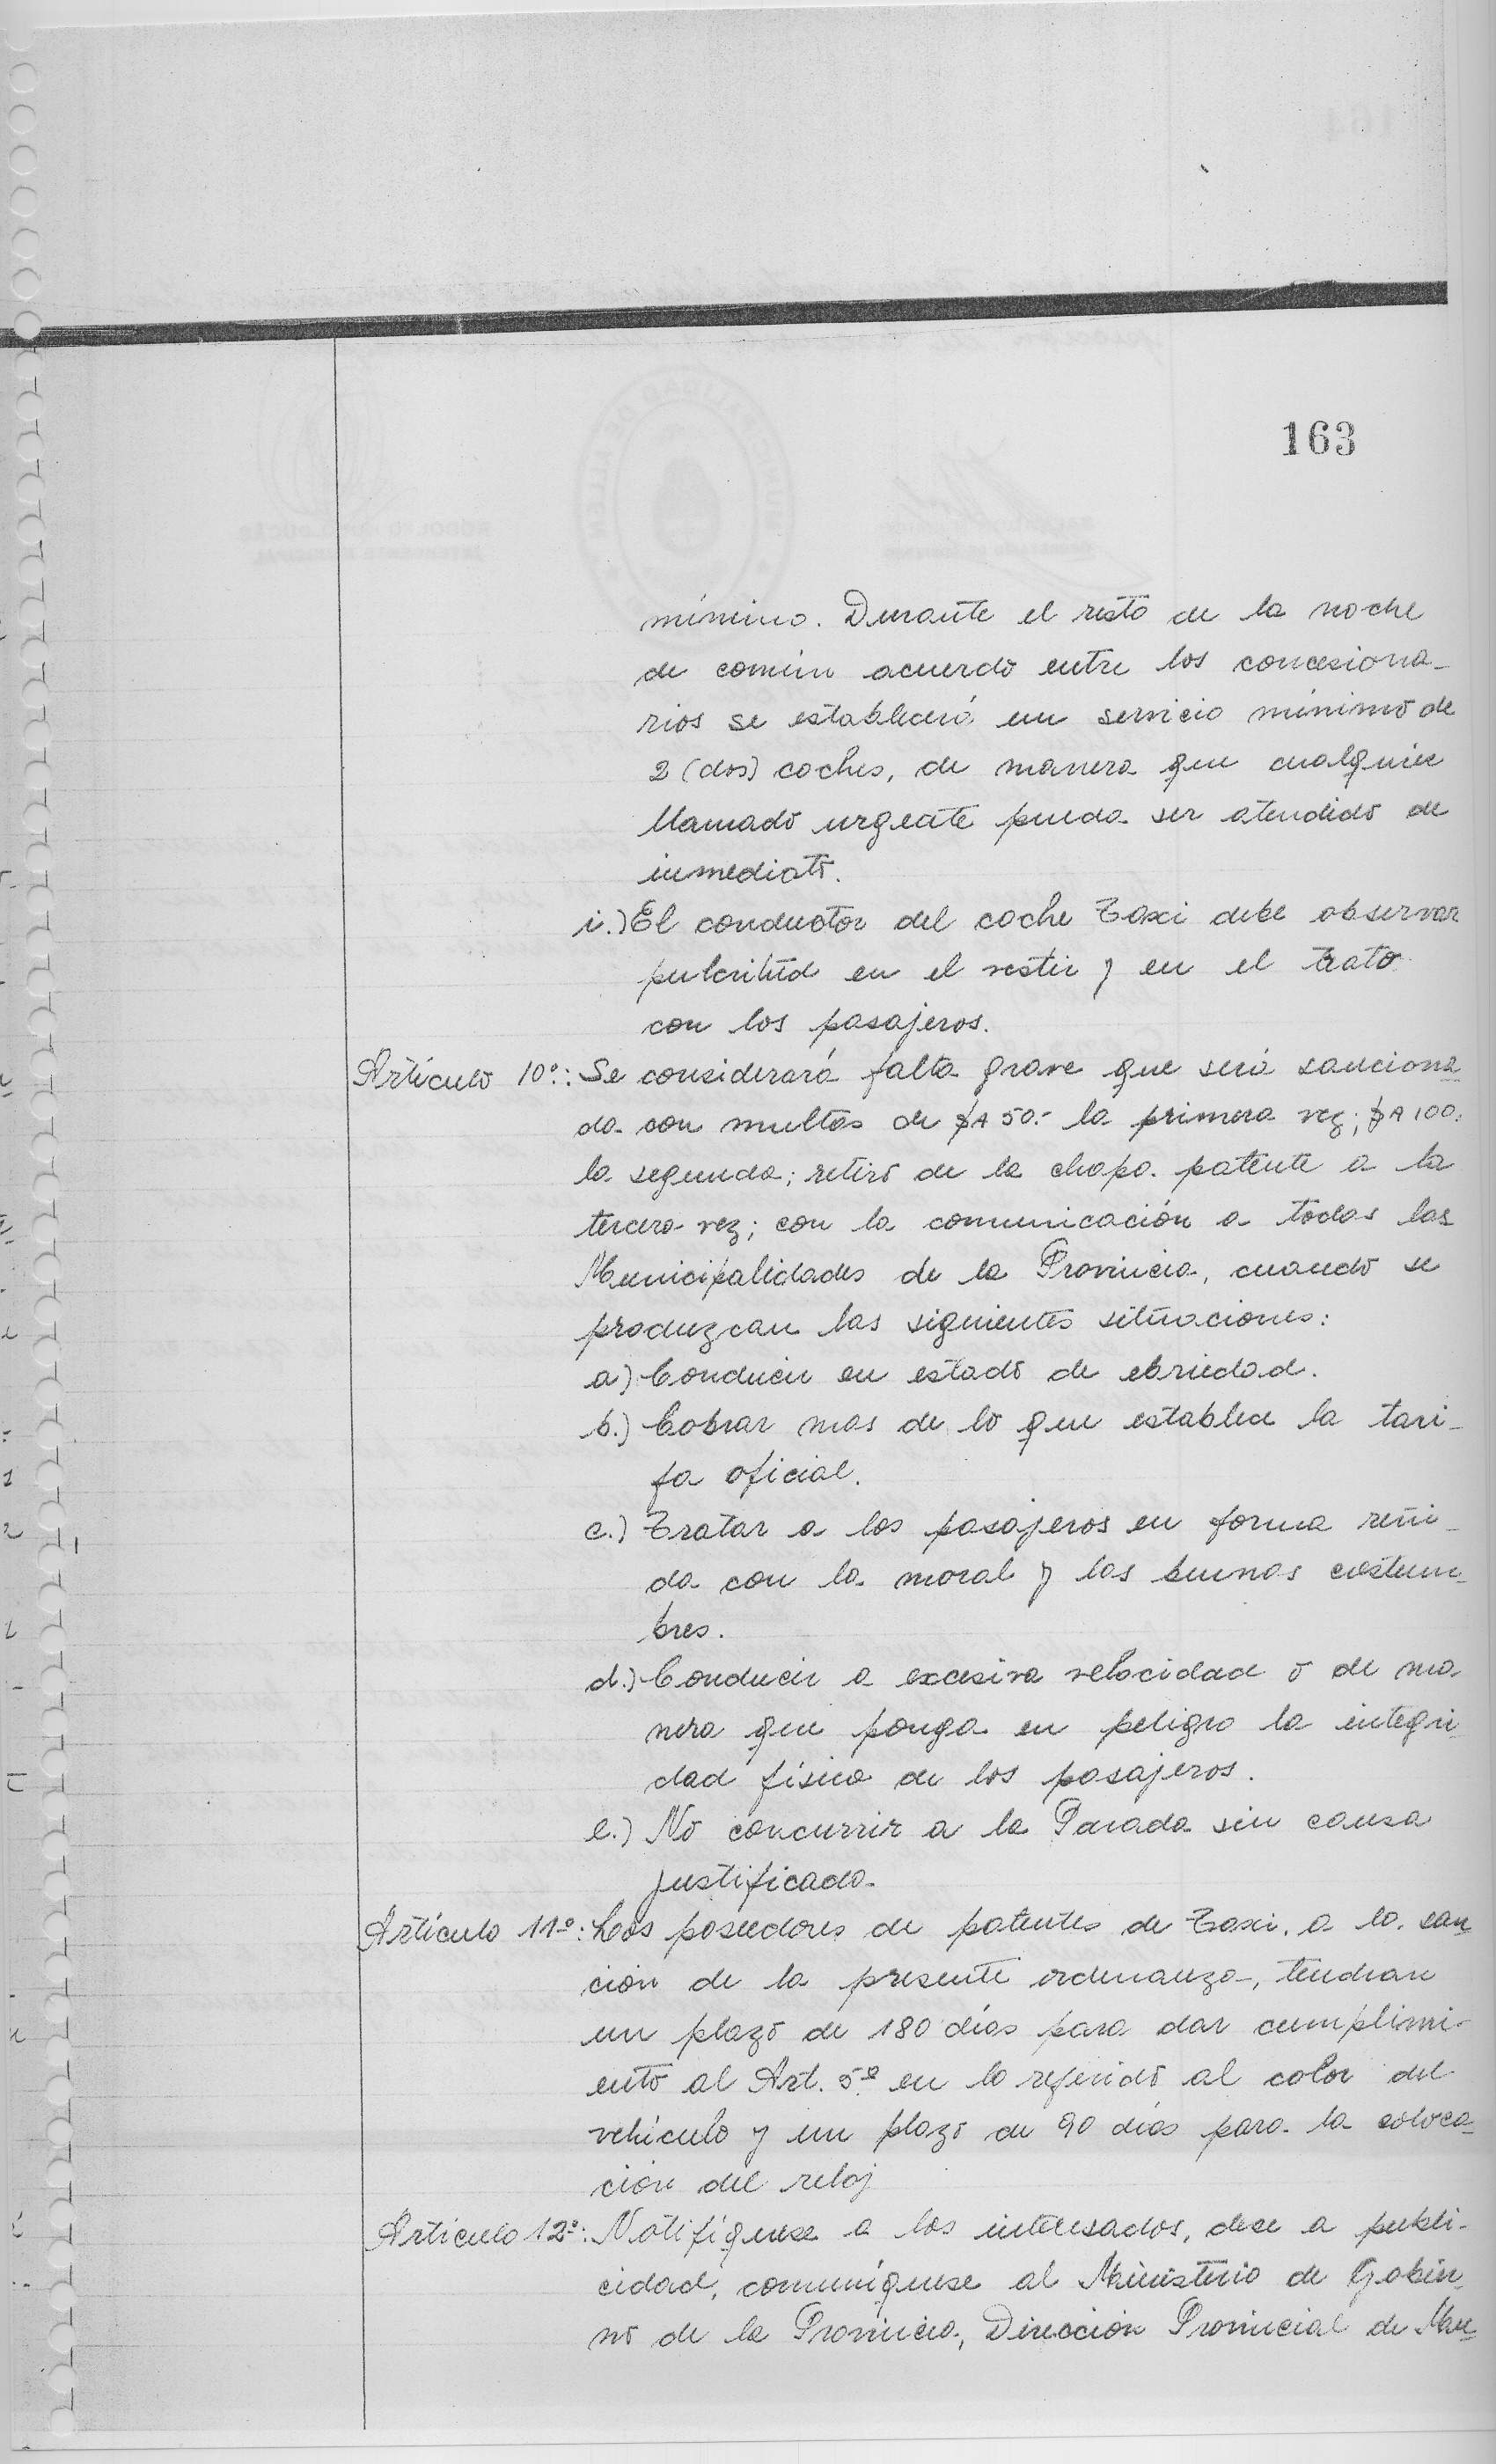 163
mínimo. Durante el resto de la noche
de común acuerdo entre los concesiona-
rios se establecerá un servicio mínimo de
2 (dos) coches, de manera que cualquier
llamado urgente pueda ser atendido de
inmediato.
i.) El conductor del coche Taxi debe observar
pulcritud en el vestir y en el trato
con los pasajeros.
Artículo 10º: Se considerará falta grave que será sanciona
da con multas de $A 50.- la primera vez; $A 100.
la segunda; retiro de la chapa patente a la
tercera vez; con la comunicación a todas las
Municipalidades de la Provincia, cuando se
produzcan las siguientes situaciones:
a) Conducir en estado de ebriedad.
b.) Cobrar mas de lo que establece la tari-
fa oficial.
c.) Tratar a los pasajeros en forma reñi-
da con la moral y las buenas costum-
bres.
d.) Conducir a excesiva velocidad o de ma-
nera que ponga en peligro la integri-
dad física de los pasajeros.
e.) No concurrir a la Parada sin causa
justificada.
Artículo 11º: Los poseedores de patentes de Taxi, a la san
ción de la presente ordenanza, tendran
un plazo de 180 días para dar cumplimi-
ento al Art. 5º en lo referido al color del
vehículo y un plazo de 90 días para la coloca-
ción del reloj
Artículo 12º: Notifíquese a los interesados, dese a publi-
cidad, comuníquese al Ministerio de Gobier-
no de la Provincia, Dirección Provincial de Mu